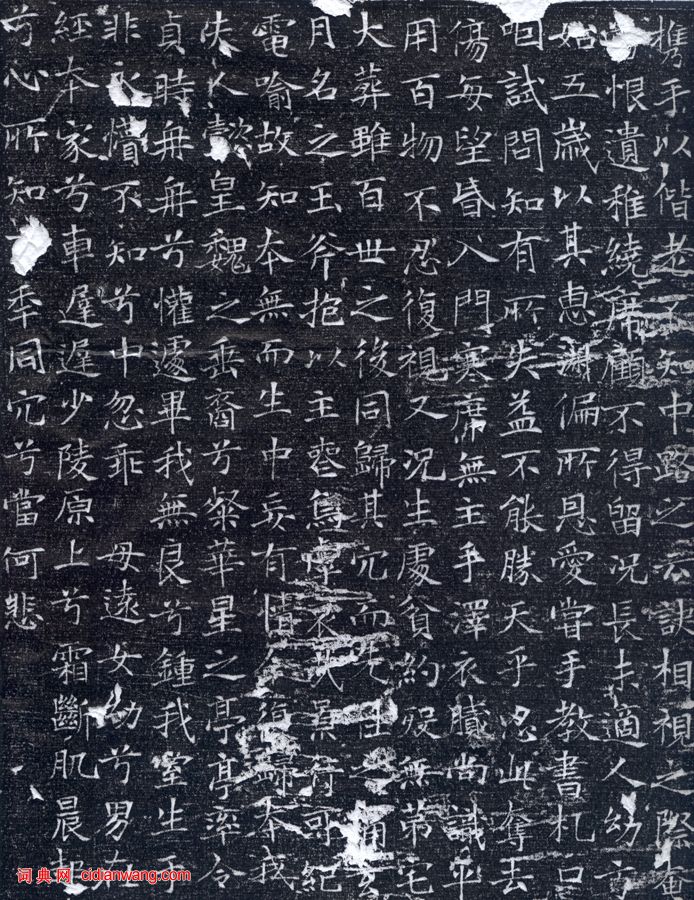 携手以偕老不知中路之云訣相視之際奄
恨遺稚繞席顧不得留况長未適人幼方
始五歲以其惠淑偏所恩愛嘗手教書札口
咽試問知有所失益不能勝天乎忍此奪去
傷每望昏入門寒席無主手澤衣膩尚識平
用百物不忍復視又况生處貧約殁無第宅
大葬雖百世之後同歸其穴而先往之痛玄
月名之玉斧抱以主喪烏虖哀哉景行可紀
電喻故知本無而生中妄有情今復歸本我
夫人懿皇魏之垂裔兮粲華星之亭亭率令
貞時冉冉兮懽遽畢我無良兮鍾我室生于
非永懵不知兮中忽乖 母遠女幼兮男在
經本家兮車遲遲少陵原上兮霜斷肌晨起
兮心所知年同穴兮當何悲
词典网 www.cidianwang.com